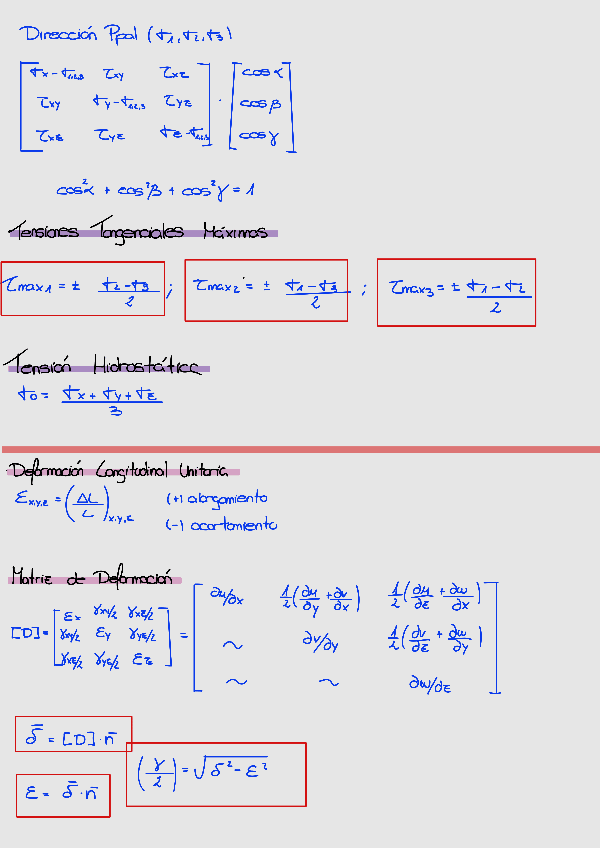 Dirección Ppal (σ1, σ2, σ3)
[ σx-σ1,2,3 τxy τxz ] [ cos α ]
[ τxy σy-σ1,2,3 τyz ] · [ cos β ]
[ τxz τyz σz-σ1,2,3 ] [ cos γ ]
cos²α + cos²β + cos²γ = 1
Tensiones Tangenciales Máximas
τmax1 = ± (σ2-σ3)/2 ; τmax2 = ± (σ1-σ3)/2 ; τmax3 = ± (σ1-σ2)/2
Tensión Hidrostática
σ0 = (σx + σy + σz)/3
Deformación Longitudinal Unitaria
εx,y,z = (ΔL/L)x,y,z (+) alargamiento
(-) acortamiento
Matriz de Deformación
[ εx γxy/2 γxz/2 ] [ ∂u/∂x 1/2(∂u/∂y + ∂v/∂x) 1/2(∂u/∂z + ∂w/∂x) ]
[D] = [ γxy/2 εy γyz/2 ] = [ ~ ∂v/∂y 1/2(∂v/∂z + ∂w/∂y) ]
[ γxz/2 γyz/2 εz ] [ ~ ~ ∂w/∂z ]
δ̄ = [D]·n̄
(γ/2) = √(δ² - ε²)
ε = δ̄·n̄